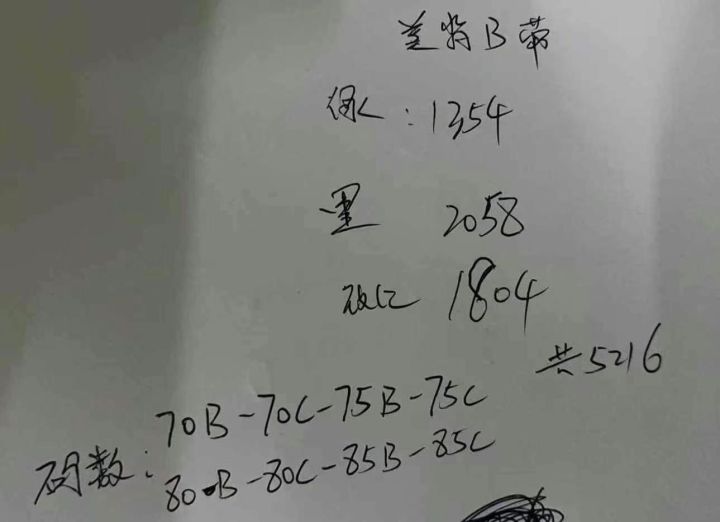 B带
: 1354
黑 2058
1804
共5216
码数: 70B-70C-75B-75C
80B-80C-85B-85C